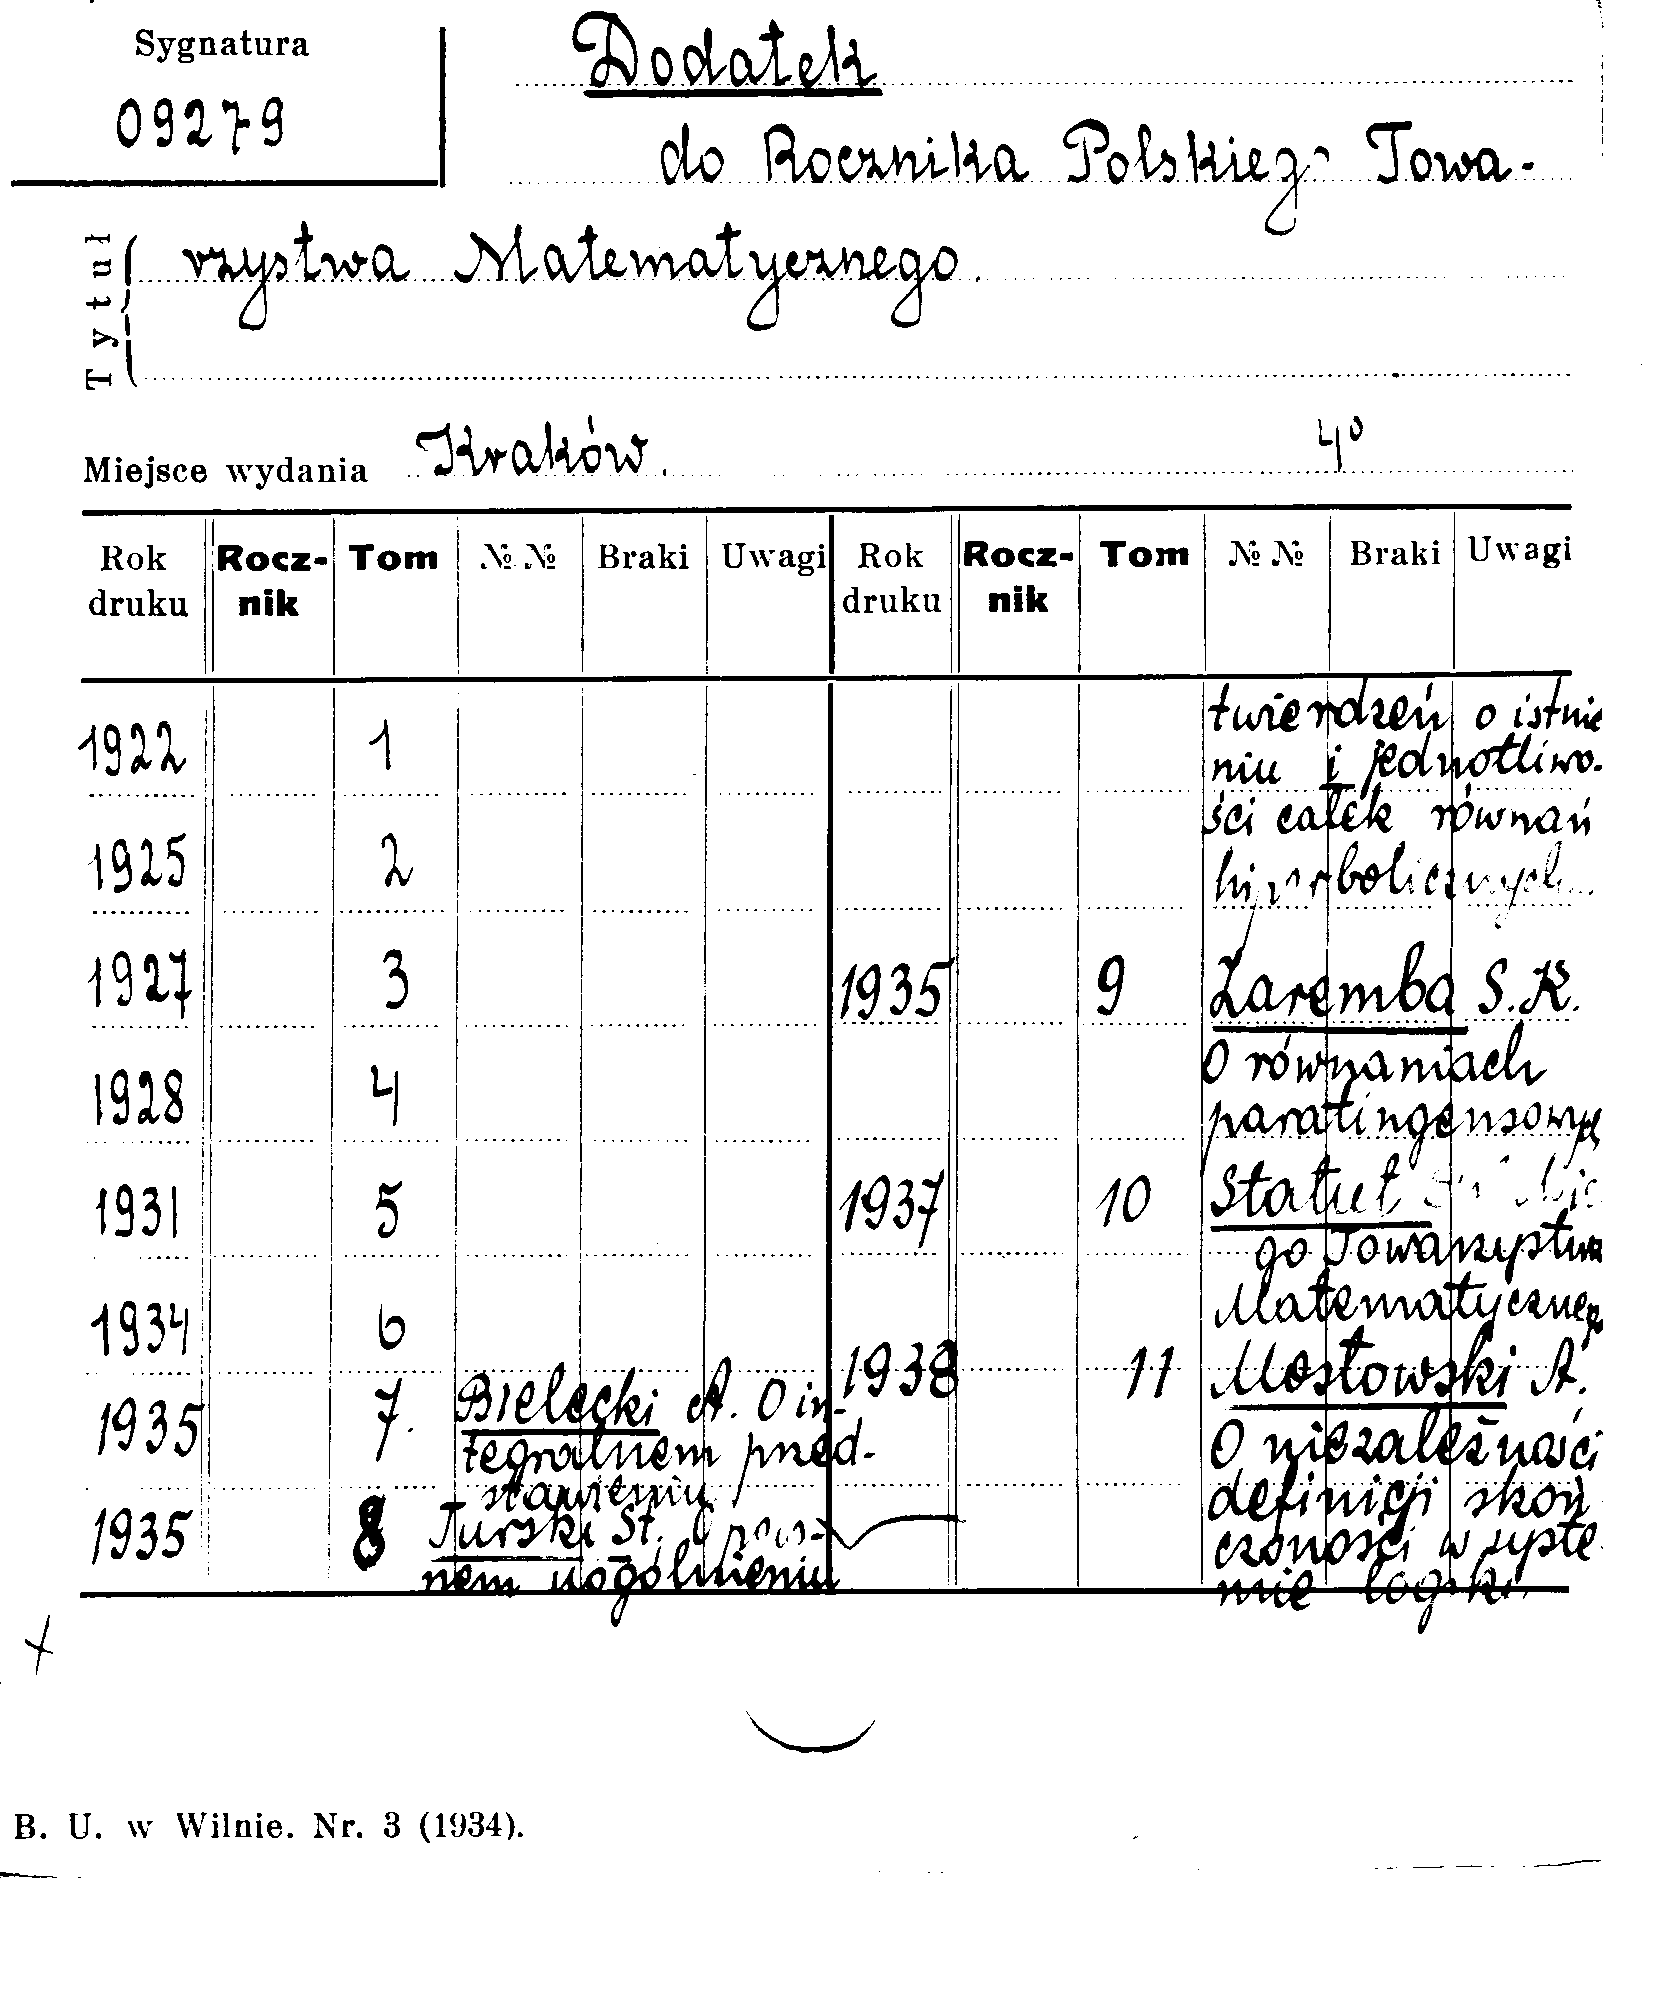 Sygnatura
09279
Dodatek
do Rocznika Polskiego Towa-
rzystwa Matematycznego.
Tytuł
Miejsce wydania Kraków. 4º
Rok druku Rocz-nik Tom №№ Braki Uwagi Rok druku Rocz-nik Tom №№ Braki Uwagi
1922 1
1925 2
1927 3
1928 4
1931 5
1934 6
1935 7. Bielecki A. O in-
tegralnem przed-
stawieniu
1935 8 Turski St. O pew-
nem uogólnieniu
twierdzeń o istnie
niu i jednotliwo-
ści całek równań
hiperbolicznych
1935 9 Zaremba S.K.
O równaniach
paratingensowych
1937 10 Statut
go Towarzystwa
Matematycznego
1938 11 Mostowski A.
O niezależności
definicji skoń
czoności w syste
mie logiki.
B. U. w Wilnie. Nr. 3 (1934).